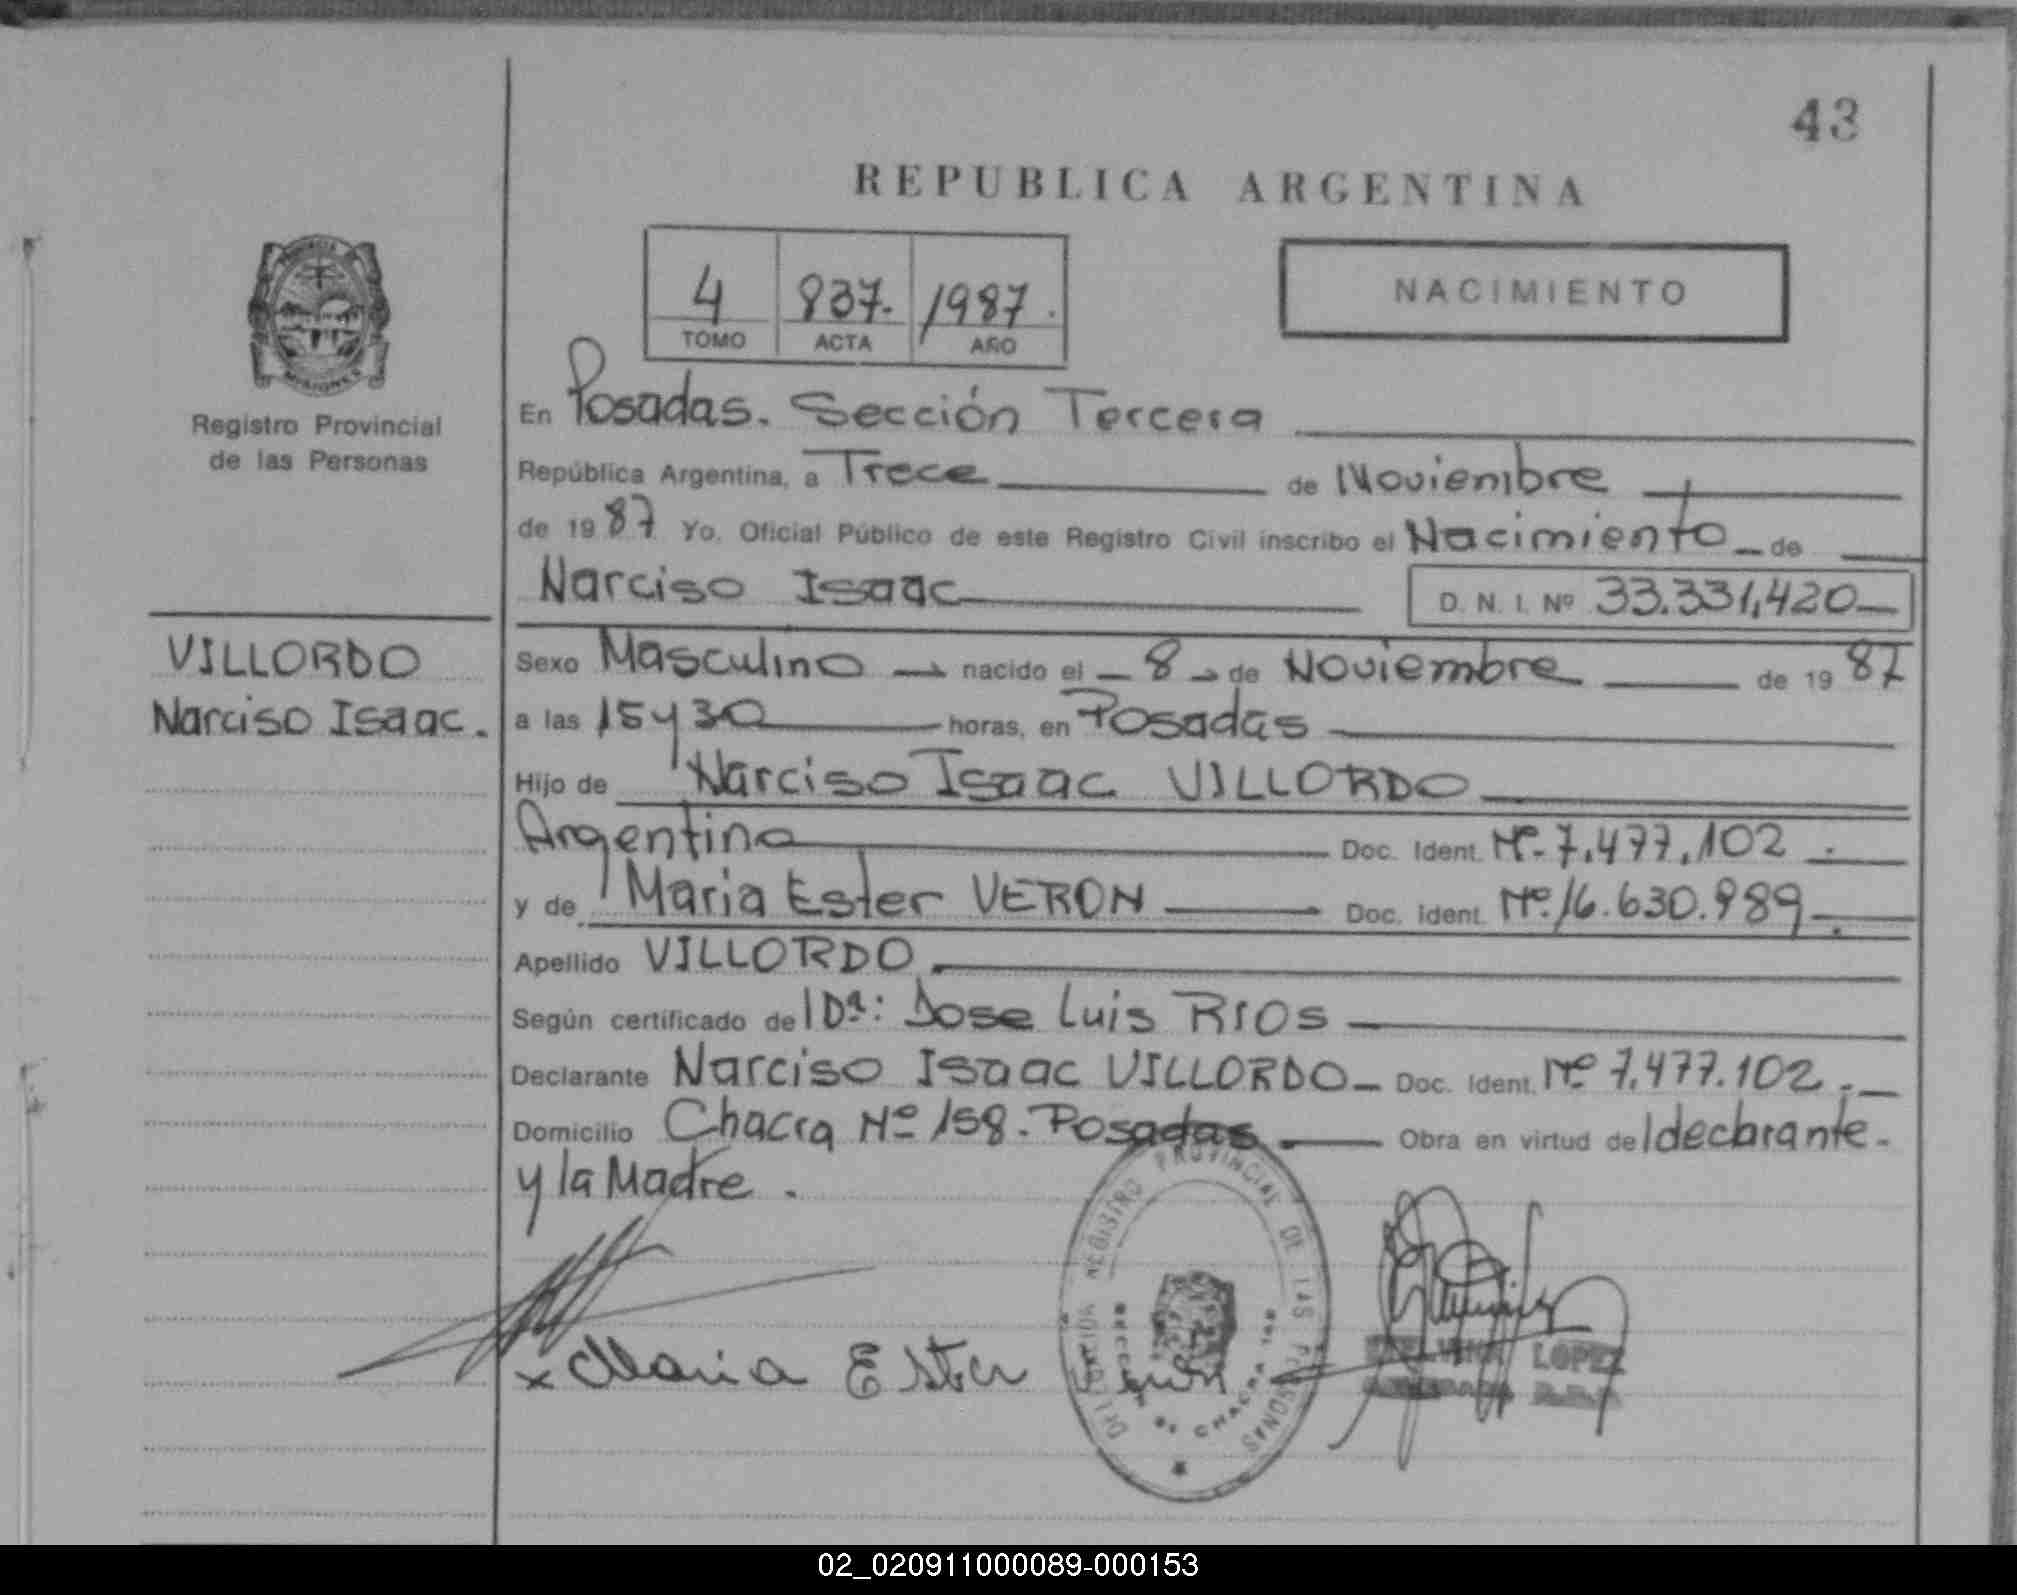 43
REPUBLICA ARGENTINA
4 837. 1987.
TOMO ACTA AÑO
NACIMIENTO
MISIONES
Registro Provincial
de las Personas
En Posadas. Sección Tercera
República Argentina, a Trece de Noviembre
de 1987 Yo, Oficial Público de este Registro Civil inscribo el Nacimiento de
Narciso Isaac D. N. I. Nº 33.331,420
VILLORDO
Narciso Isaac.
Sexo Masculino nacido el 8 de Noviembre de 1987
a las 15 y 30 horas, en Posadas
Hijo de Narciso Isaac VILLORDO
Argentino Doc. Ident. Nº 7.477.102.
y de Maria Ester VERON Doc. Ident. Nº 16.630.989.
Apellido VILLORDO.
Según certificado de l Dr: Jose Luis RIOS
Declarante Narciso Isaac VILLORDO Doc. Ident. Nº 7.477.102.
Domicilio Chacra Nº 158. Posadas. Obra en virtud del declarante
y la Madre.
x Maria Ester
DELEGACION REGISTRO PROVINCIAL DE LAS PERSONAS
SECCION 3ª CHACRA
LOPEZ
02_020911000089-000153